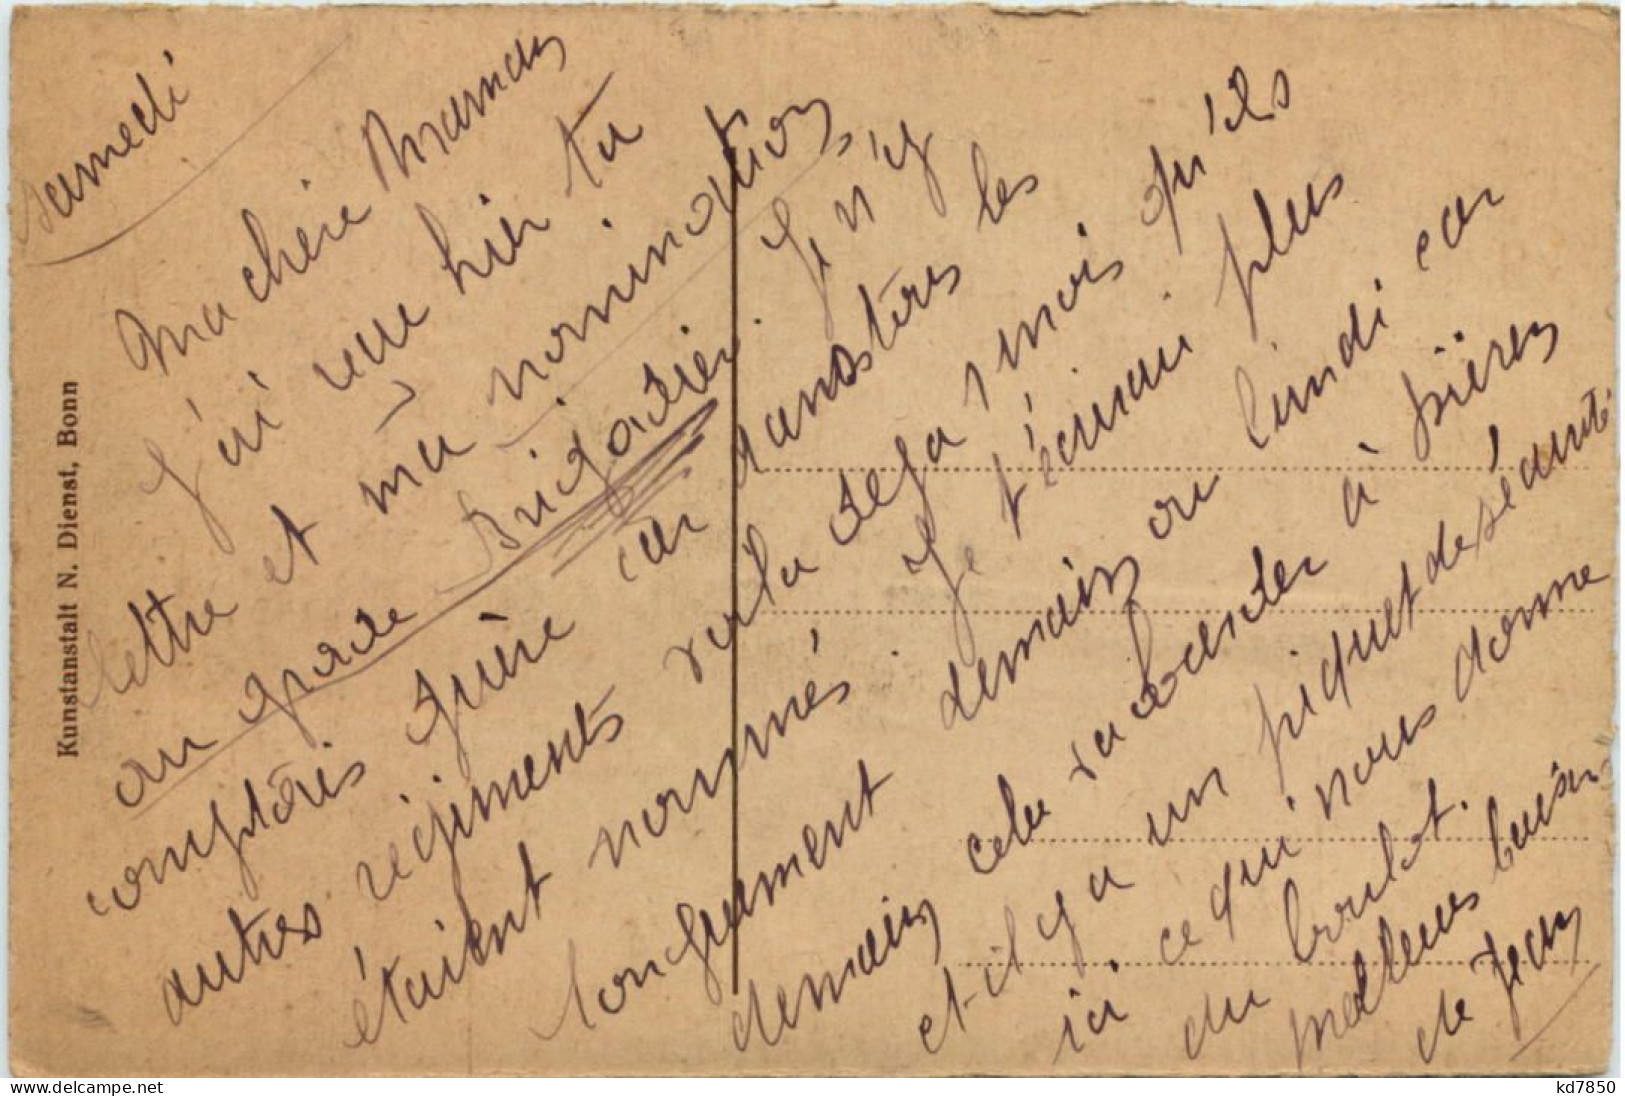 samedi
Ma chère Maman
J'ai reçu hier ta
lettre et ma nomination
au grade Brigadier. Je n'y
comptais guère car dans tous les
autres régiments voila deja 1 mois qu'ils
étaient nommés. Je t'écrirai plus
longuement demain ou lundi car
demain cela va barder à Bieren
et il y a un piquet de sécurité
ici ce qui nous donne
du boulot.
Meilleurs baisers
de Jean
Kunstanstalt N. Dienst, Bonn
kd7850